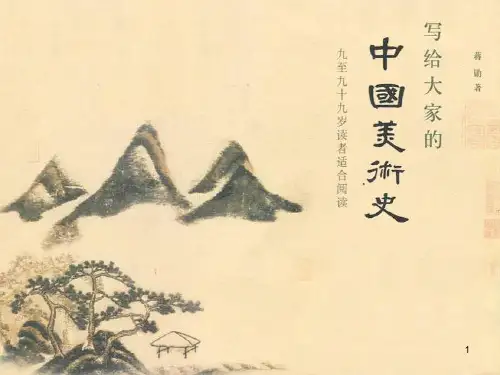 蒋勋著
写给大家的
中國美術史
九至九十九岁读者适合阅读
1